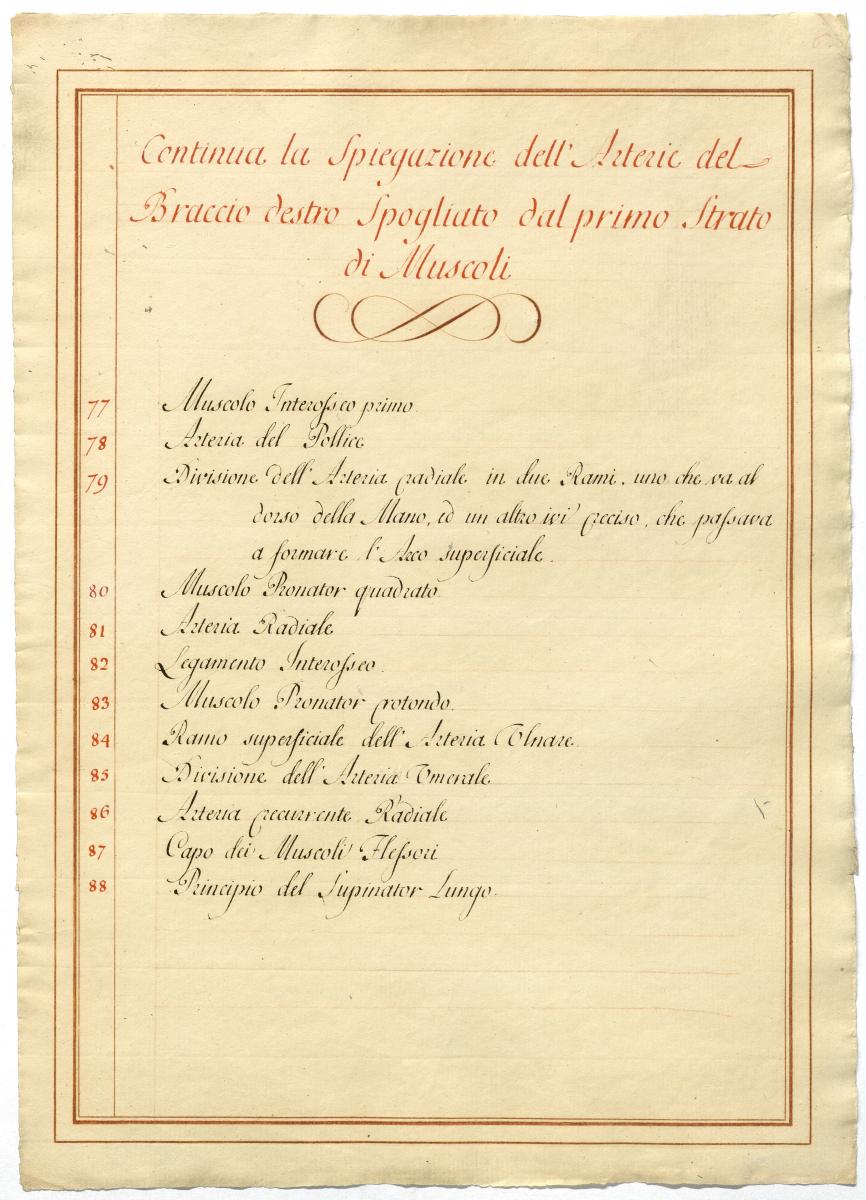 Continua la Spiegazione dell'Arterie del
Braccio destro Spogliato dal primo Strato
di Muscoli
77 Muscolo Interosseo primo.
78 Arteria del Pollice
79 Divisione dell'Arteria radiale in due Rami, uno che va al
dorso della Mano, ed un altro ivi reciso, che passava
a formare l'Arco superficiale.
80 Muscolo Pronator quadrato.
81 Arteria Radiale
82 Legamento Interosseo.
83 Muscolo Pronator rotondo.
84 Ramo superficiale dell'Arteria Ulnare.
85 Divisione dell'Arteria Umerale
86 Arteria recurrente Radiale
87 Capo dei Muscoli Flessori
88 Principio del Supinator Lungo.